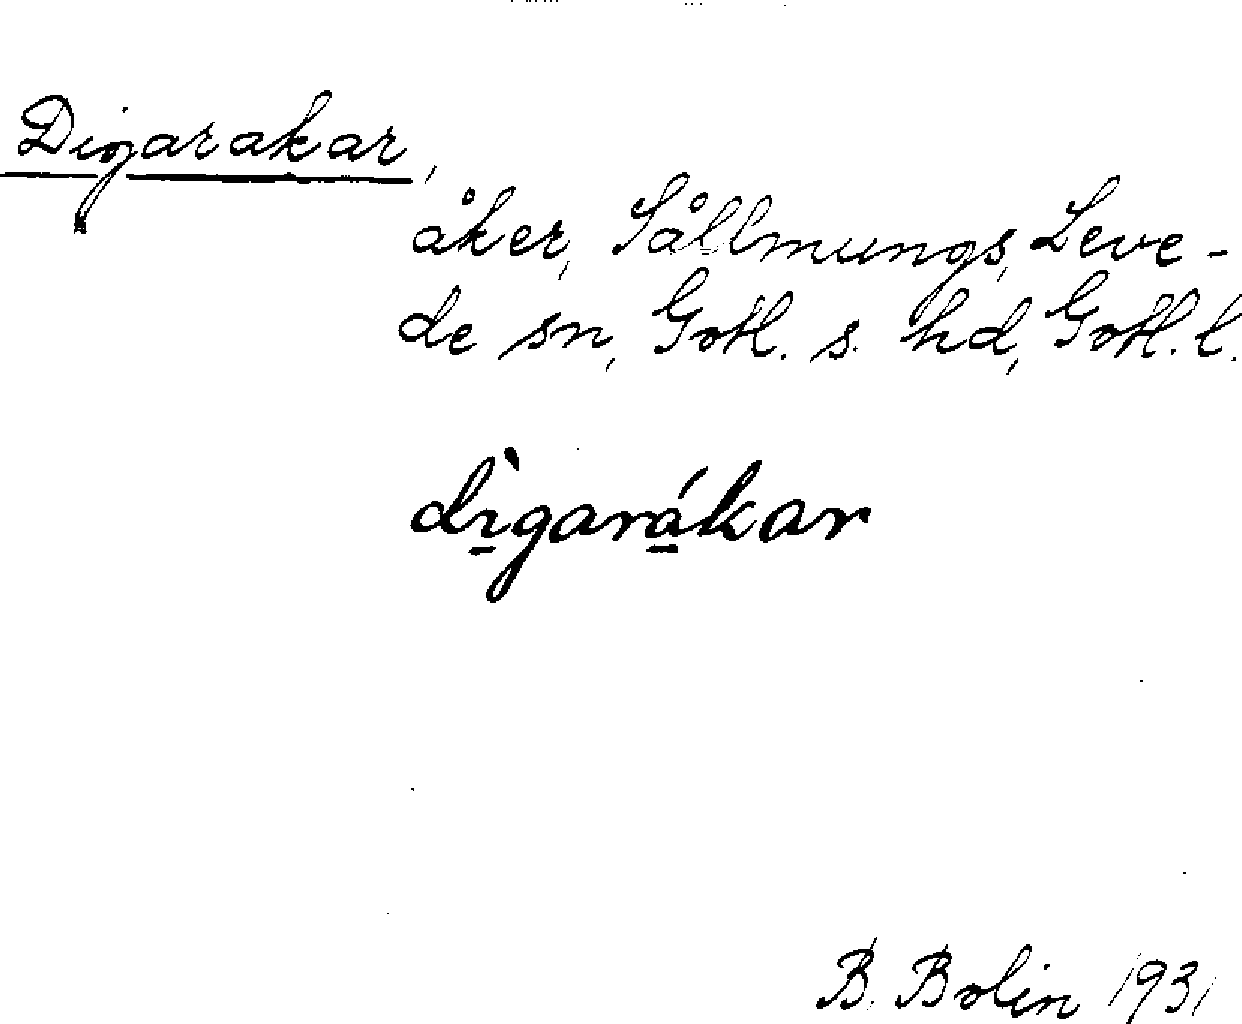 Digarakar,
åker, Sållmungs, Leve-
de sn, Gotl. s. hd, Gotl. l.
dı̱̀gará̱kar
B. Bolin 1931